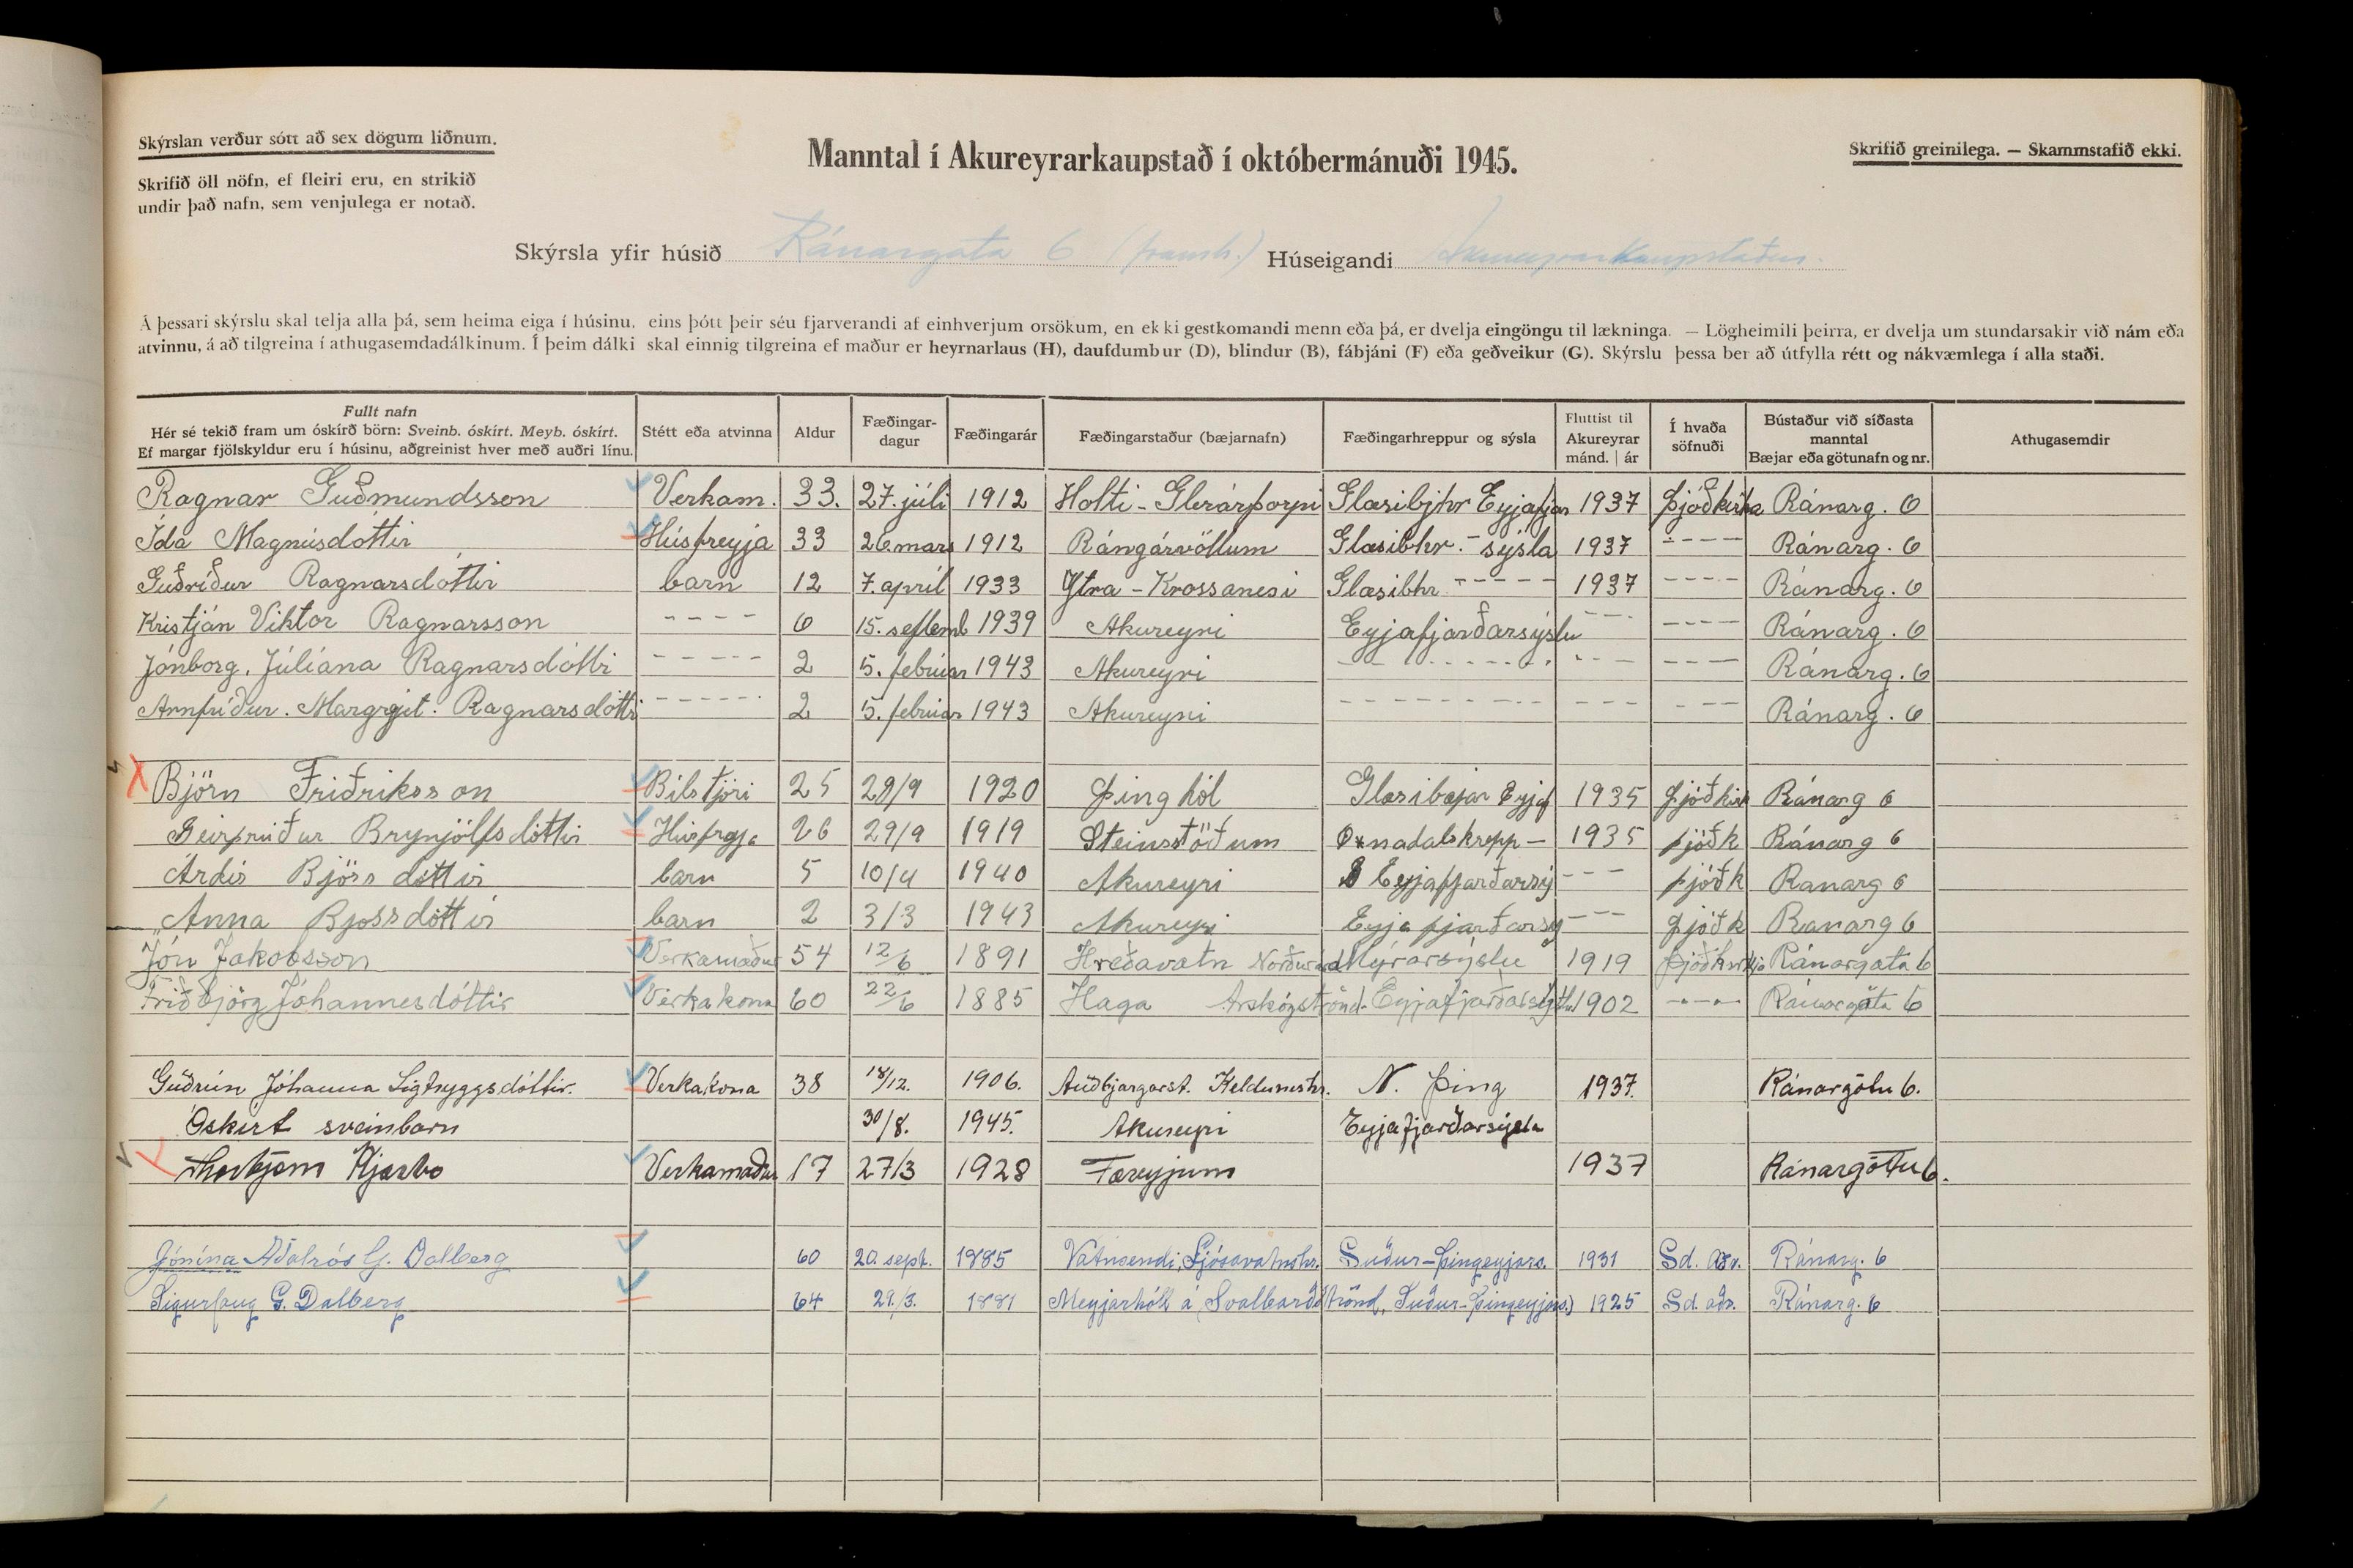 Skýrslan verður sótt að sex dögum liðnum.
Skrifið öll nöfn, ef fleiri eru, en strikið
undir það nafn, sem venjulega er notað.
Manntal í Akureyrarkaupstað í októbermánuði 1945.
Skrifið greinilega. — Skammstafið ekki.
Skýrsla yfir húsið Ránargata 6 (framh.) Húseigandi Akureyrarkaupstaður.
Á þessari skýrslu skal telja alla þá, sem heima eiga í húsinu, eins þótt þeir séu fjarverandi af einhverjum orsökum, en ekki gestkomandi menn eða þá, er dvelja eingöngu til lækninga. — Lögheimili þeirra, er dvelja um stundarsakir við nám eða
atvinnu, á að tilgreina í athugasemdadálkinum. Í þeim dálki skal einnig tilgreina ef maður er heyrnarlaus (H), daufdumbur (D), blindur (B), fábjáni (F) eða geðveikur (G). Skýrslu þessa ber að útfylla rétt og nákvæmlega í alla staði.
Fullt nafn
Hér sé tekið fram um óskírð börn: Sveinb. óskírt. Meyb. óskírt.
Ef margar fjölskyldur eru í húsinu, aðgreinist hver með auðri línu.
Stétt eða atvinna
Aldur
Fæðingar-
dagur
Fæðingarár
Fæðingarstaður (bæjarnafn)
Fæðingarhreppur og sýsla
Fluttist til
Akureyrar
mánd. | ár
Í hvaða
söfnuði
Bústaður við síðasta
manntal
Bæjar eða götunafn og nr.
Athugasemdir
Ragnar Guðmundsson Verkam. 33. 27. júli 1912 Holti - Glerárþorpi Glæsibjhr Eyjafjar 1937 Þjóðkirka Ránarg. 6
Ída Magnúsdóttir Húsfreyja 33 26. mars 1912 Rángárvöllum Glæsibhr. - sýsla 1937 ---- Ránarg. 6
Guðríður Ragnarsdóttir barn 12 7. apríl 1933 Ytra - Krossanesi Glæsibhr ----- 1937 ---- Ránarg. 6
Kristján Viktor Ragnarsson ---- 6 15. septemb 1939 Akureyri Eyjafjarðarsýslu --- ---- Ránarg. 6
Jónborg. Júlíana Ragnarsdóttir ----- 2 5. febrúar 1943 Akureyri -------- --- ---- Ránarg. 6
Arnfríður. Margrjet. Ragnarsdóttir ------ 2 5. febrúar 1943 Akureyri --------- --- ---- Ránarg. 6
Björn Friðriksson Bílstjóri 25 29/9 1920 Þinghól Glæsibæjar Eyjaf 1935 Þjóðkirk Ránarg 6
Geirþrúður Brynjólfsdóttir Húsfreyja 26 29/9 1919 Steinsstöðum Öxnadalshrepp - 1935 þjóðk Ránarg 6
Árdís Björnsdóttir barn 5 10/4 1940 Akureyri Eyjafjarðarsý --- þjóðk Ranarg 6
Anna Björnsdóttir barn 2 3/3 1943 Akureyri Eyjafjarðarsý --- þjóðk Ranarg 6
Jón Jakobsson Verkamaður 54 12/6 1891 Hreðavatn Norðurárd Mýrarsýslu 1919 Þjóðkirkja Ránargata 6
Friðbjörg Jóhannesdóttir Verkakona 60 22/6 1885 Haga Árskógströnd - Eyjafjarðarsýslu 1902 ---- Ránargata 6
Guðrún Jóhanna Sigtryggsdóttir. Verkakona 38 18/12. 1906. Auðbjargarst. Keldunesshr. N. Þing 1937. Ránargötu 6.
Óskírt sveinbarn 30/8. 1945. Akureyri Eyjafjarðarsýsla
Thorbjørn Kjærbo Verkamaður 17 27/3 1928 Færeyjum 1937 Ránargötu 6.
Jónína Aðalrós G. Dalberg 60 20. sept. 1885 Vatnsendi, Ljósavatnshr. Suður-Þingeyjars. 1931 Sd. Aðv. Ránarg. 6
Sigurlaug G. Dalberg 64 29./3. 1881 Meyjarhóll á Svalbarðsströnd, Suður-Þingeyjars.) 1925 Sd. aðv. Ránarg. 6